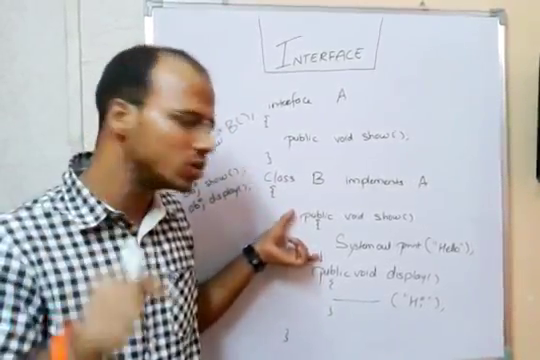 INTERFACE
interface A
{
public void show();
}
Class B implements A
{
public void show()
{
System out print ("Hello");
public void display()
{
("Hi");
}
}
B();
show();
ob; display();